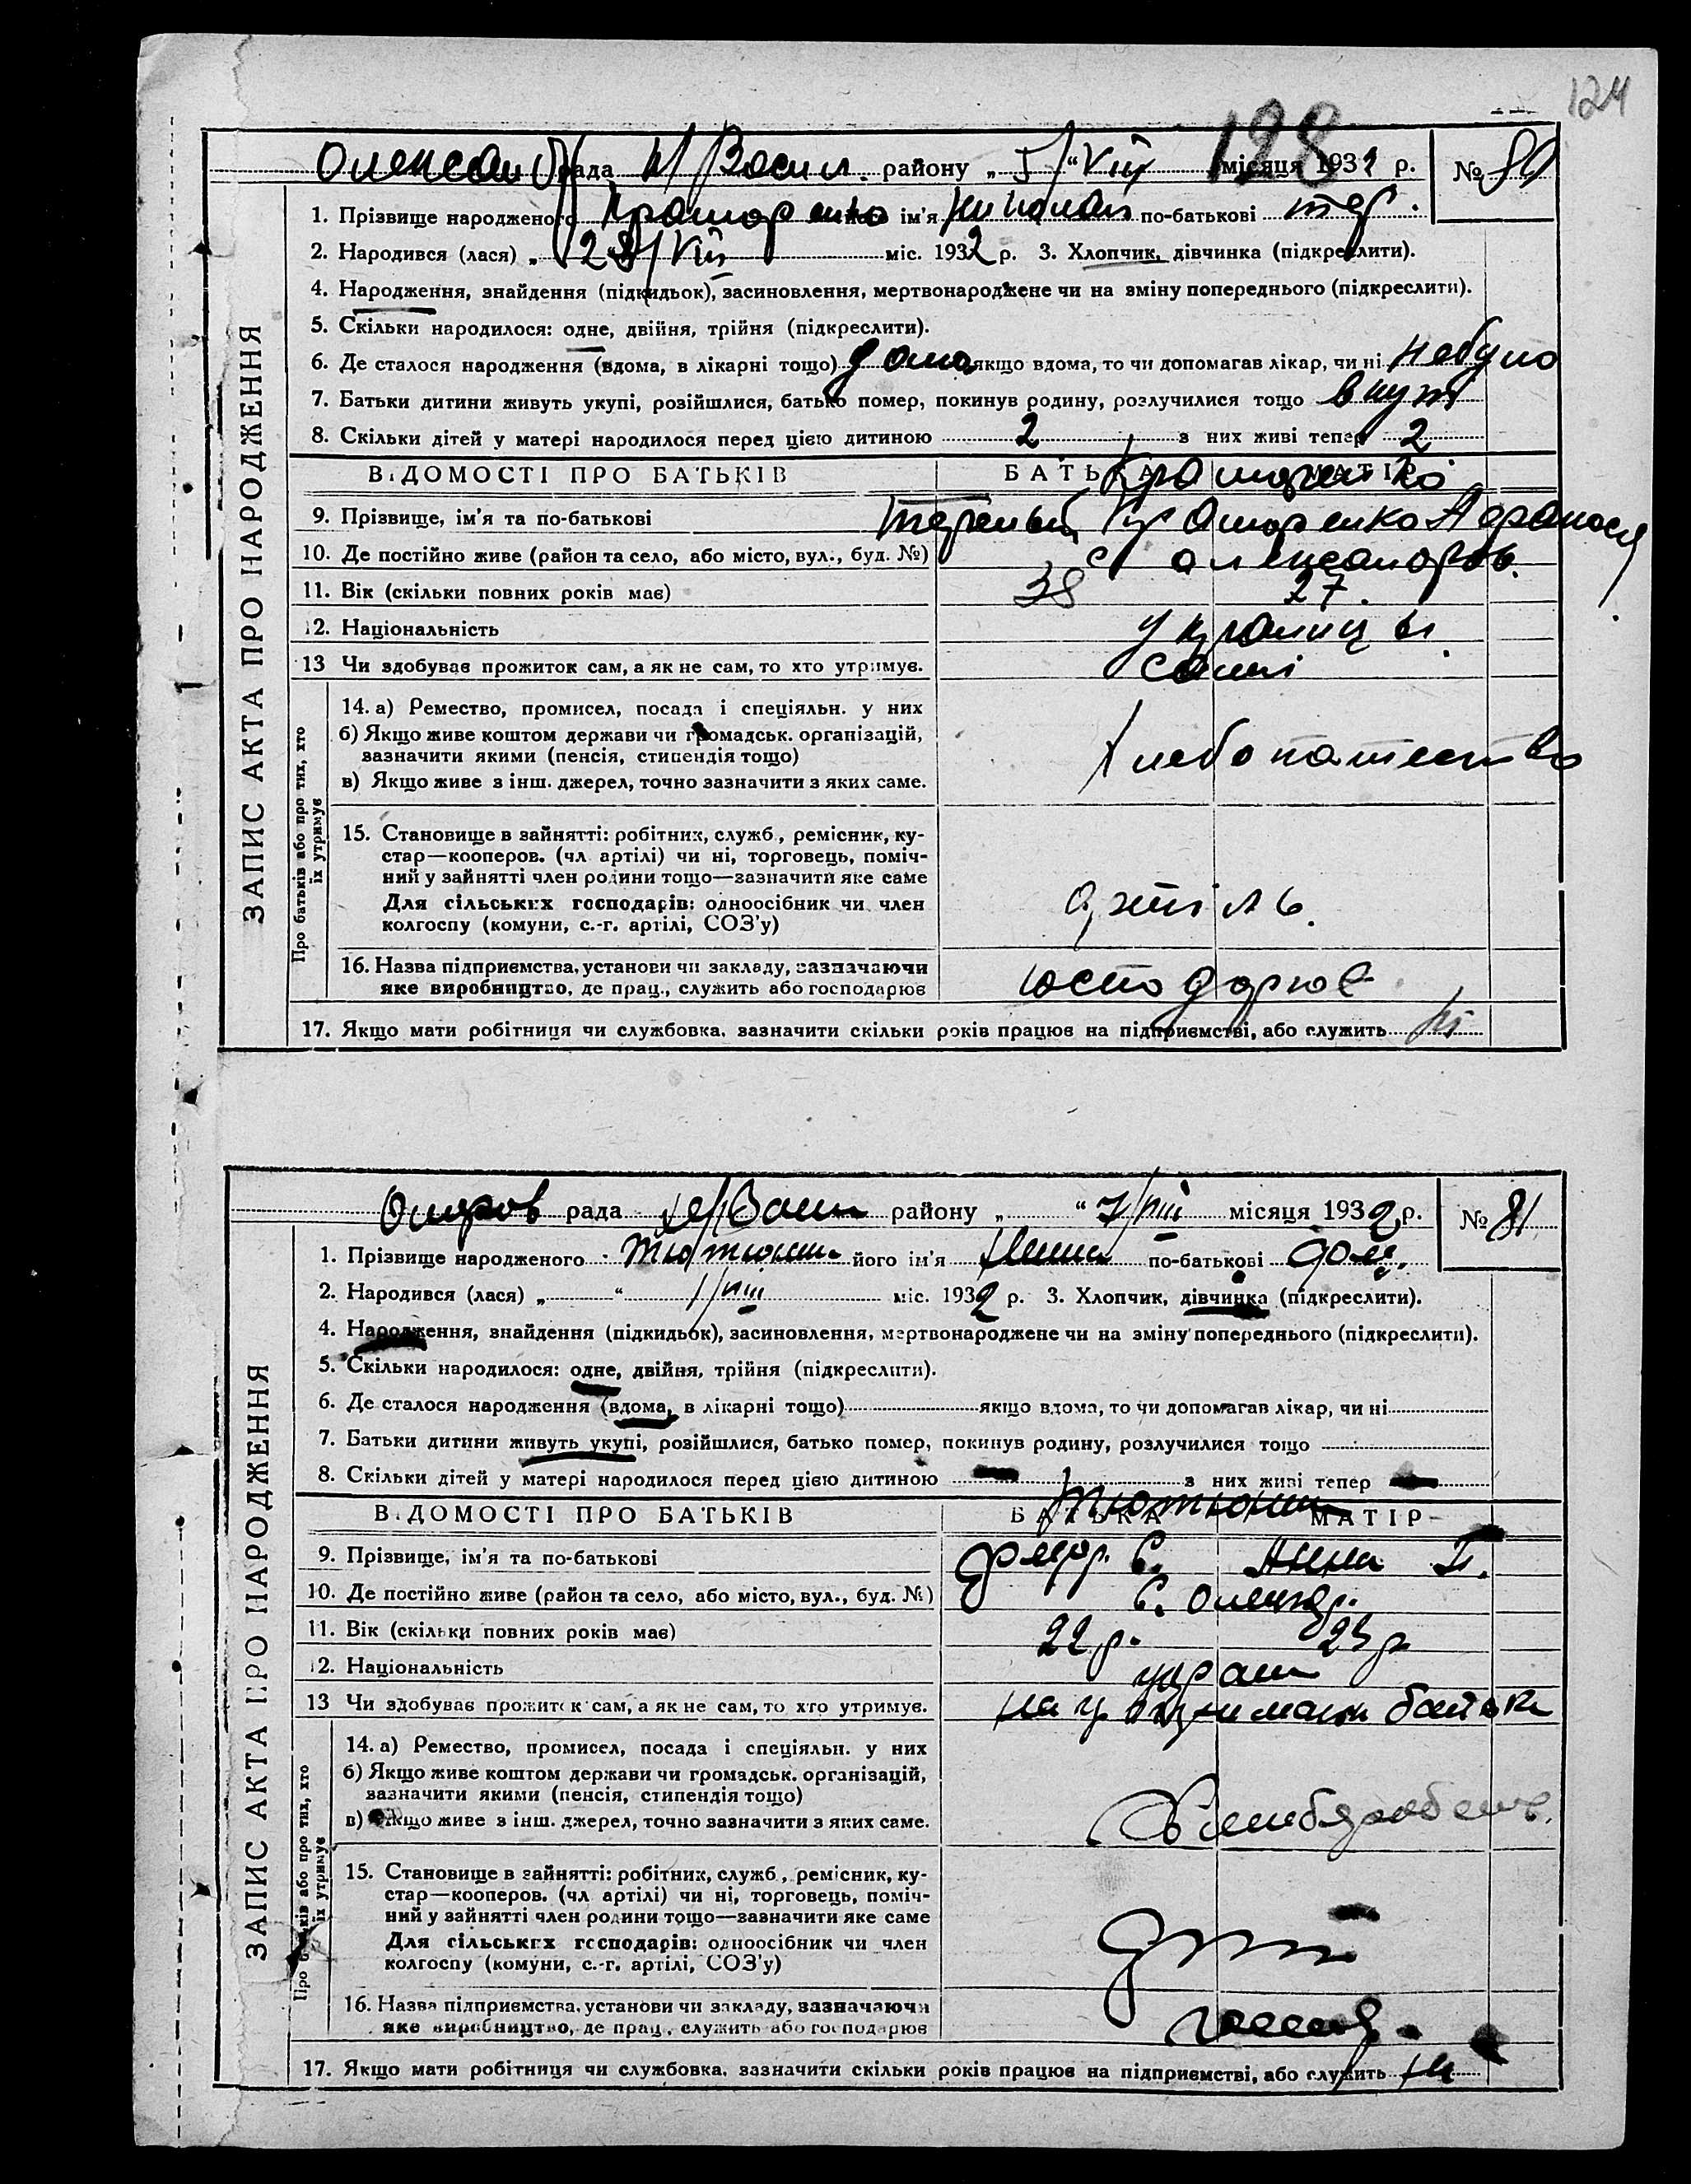 124
198
Олексан рада Н/Васил. району „ 5/ “ VIII місяця 1932 р. № 80
1. Прізвище народженого Краморенко ім'я Николай по-батькові тер.
2. Народився (лася) „ 28/VII міс. 1932 р. 3. Хлопчик, дівчинка (підкреслити).
4. Народження, знайдення (підкидьок), засиновлення, мертвонароджене чи на зміну попереднього (підкреслити).
5. Скільки народилося: одне, двійня, трійня (підкреслити).
6. Де сталося народження (вдома, в лікарні тощо) дома якщо вдома, то чи допомагав лікар, чи ні небуло
7. Батьки дитини живуть укупі, розійшлися, батько помер, покинув родину, розлучилися тощо вкупі
8. Скільки дітей у матері народилося перед цією дитиною 2 з них живі тепер 2
ВІДОМОСТІ ПРО БАТЬКІВ БАТЬКА МАТІР
Краморенко
9. Прізвище, ім'я та по-батькові Терентій Краморенко Афанасія
10. Де постійно живе (район та село, або місто, вул., буд. №) с олександров.
11. Вік (скільки повних років має) 38 27.
12. Національність українці
13 Чи здобував прожиток сам, а як не сам, то хто утримує. самі
14. а) Ремество, промисел, посада і спеціяльн. у них
б) Якщо живе коштом держави чи громадськ. організацій,
зазначити якими (пенсія, стипендія тощо)
хлебопашество
в) Якщо живе з інш. джерел, точно зазначити з яких саме.
15. Становище в зайнятті: робітник, служб., ремісник, ку-
стар—кооперов. (чл. артілі) чи ні, торговець, поміч-
ний у зайнятті член родини тощо—зазначити яке саме
Для сільських господарів: одноосібник чи член
колгоспу (комуни, с.-г. артілі, СОЗ'у)
артіль.
16. Назва підприємства, установи чи закладу, зазначаючи
яке виробництво, де прац., служить або господарює
господарює
17. Якщо мати робітниця чи службовка, зазначити скільки років працює на підприємстві, або служить ні
ЗАПИС АКТА ПРО НАРОДЖЕННЯ
Про батьків або про тих, хто
їх утримує
рада Н/Васил району „ “ 7/VIII місяця 1932 р. № 81
1. Прізвище народженого Тютюник його ім'я по-батькові
2. Народився (лася) „ “ 1/VIII міс. 1932 р. 3. Хлопчик, дівчинка (підкреслити).
4. Народження, знайдення (підкидьок), засиновлення, мертвонароджене чи на зміну попереднього (підкреслити).
5. Скільки народилося: одне, двійня, трійня (підкреслити).
6. Де сталося народження (вдома, в лікарні тощо) якщо вдома, то чи допомагав лікар, чи ні
7. Батьки дитини живуть укупі, розійшлися, батько помер, покинув родину, розлучилися тощо
8. Скільки дітей у матері народилося перед цією дитиною з них живі тепер
ВІДОМОСТІ ПРО БАТЬКІВ БАТЬКА МАТІР
Тютюник
9. Прізвище, ім'я та по-батькові Федор. С. Анна П.
10. Де постійно живе (район та село, або місто, вул., буд. №) с. Олександр.
11. Вік (скільки повних років має) 22 р. 23 р
12. Національність україн
13 Чи здобував прожиток сам, а як не сам, то хто утримує. на утримани батька
14. а) Ремество, промисел, посада і спеціяльн. у них
б) Якщо живе коштом держави чи громадськ. організацій,
зазначити якими (пенсія, стипендія тощо)
в) Якщо живе з інш. джерел, точно зазначити з яких саме.
15. Становище в зайнятті: робітник, служб., ремісник, ку-
стар—кооперов. (чл. артілі) чи ні, торговець, поміч-
ний у зайнятті член родини тощо—зазначити яке саме
Для сільських господарів: одноосібник чи член
колгоспу (комуни, с.-г. артілі, СОЗ'у)
16. Назва підприємства, установи чи закладу, зазначаючи
яке виробництво, де прац., служить або господарює
17. Якщо мати робітниця чи службовка, зазначити скільки років працює на підприємстві, або служить ні
ЗАПИС АКТА ПРО НАРОДЖЕННЯ
Про батьків або про тих, хто
їх утримує